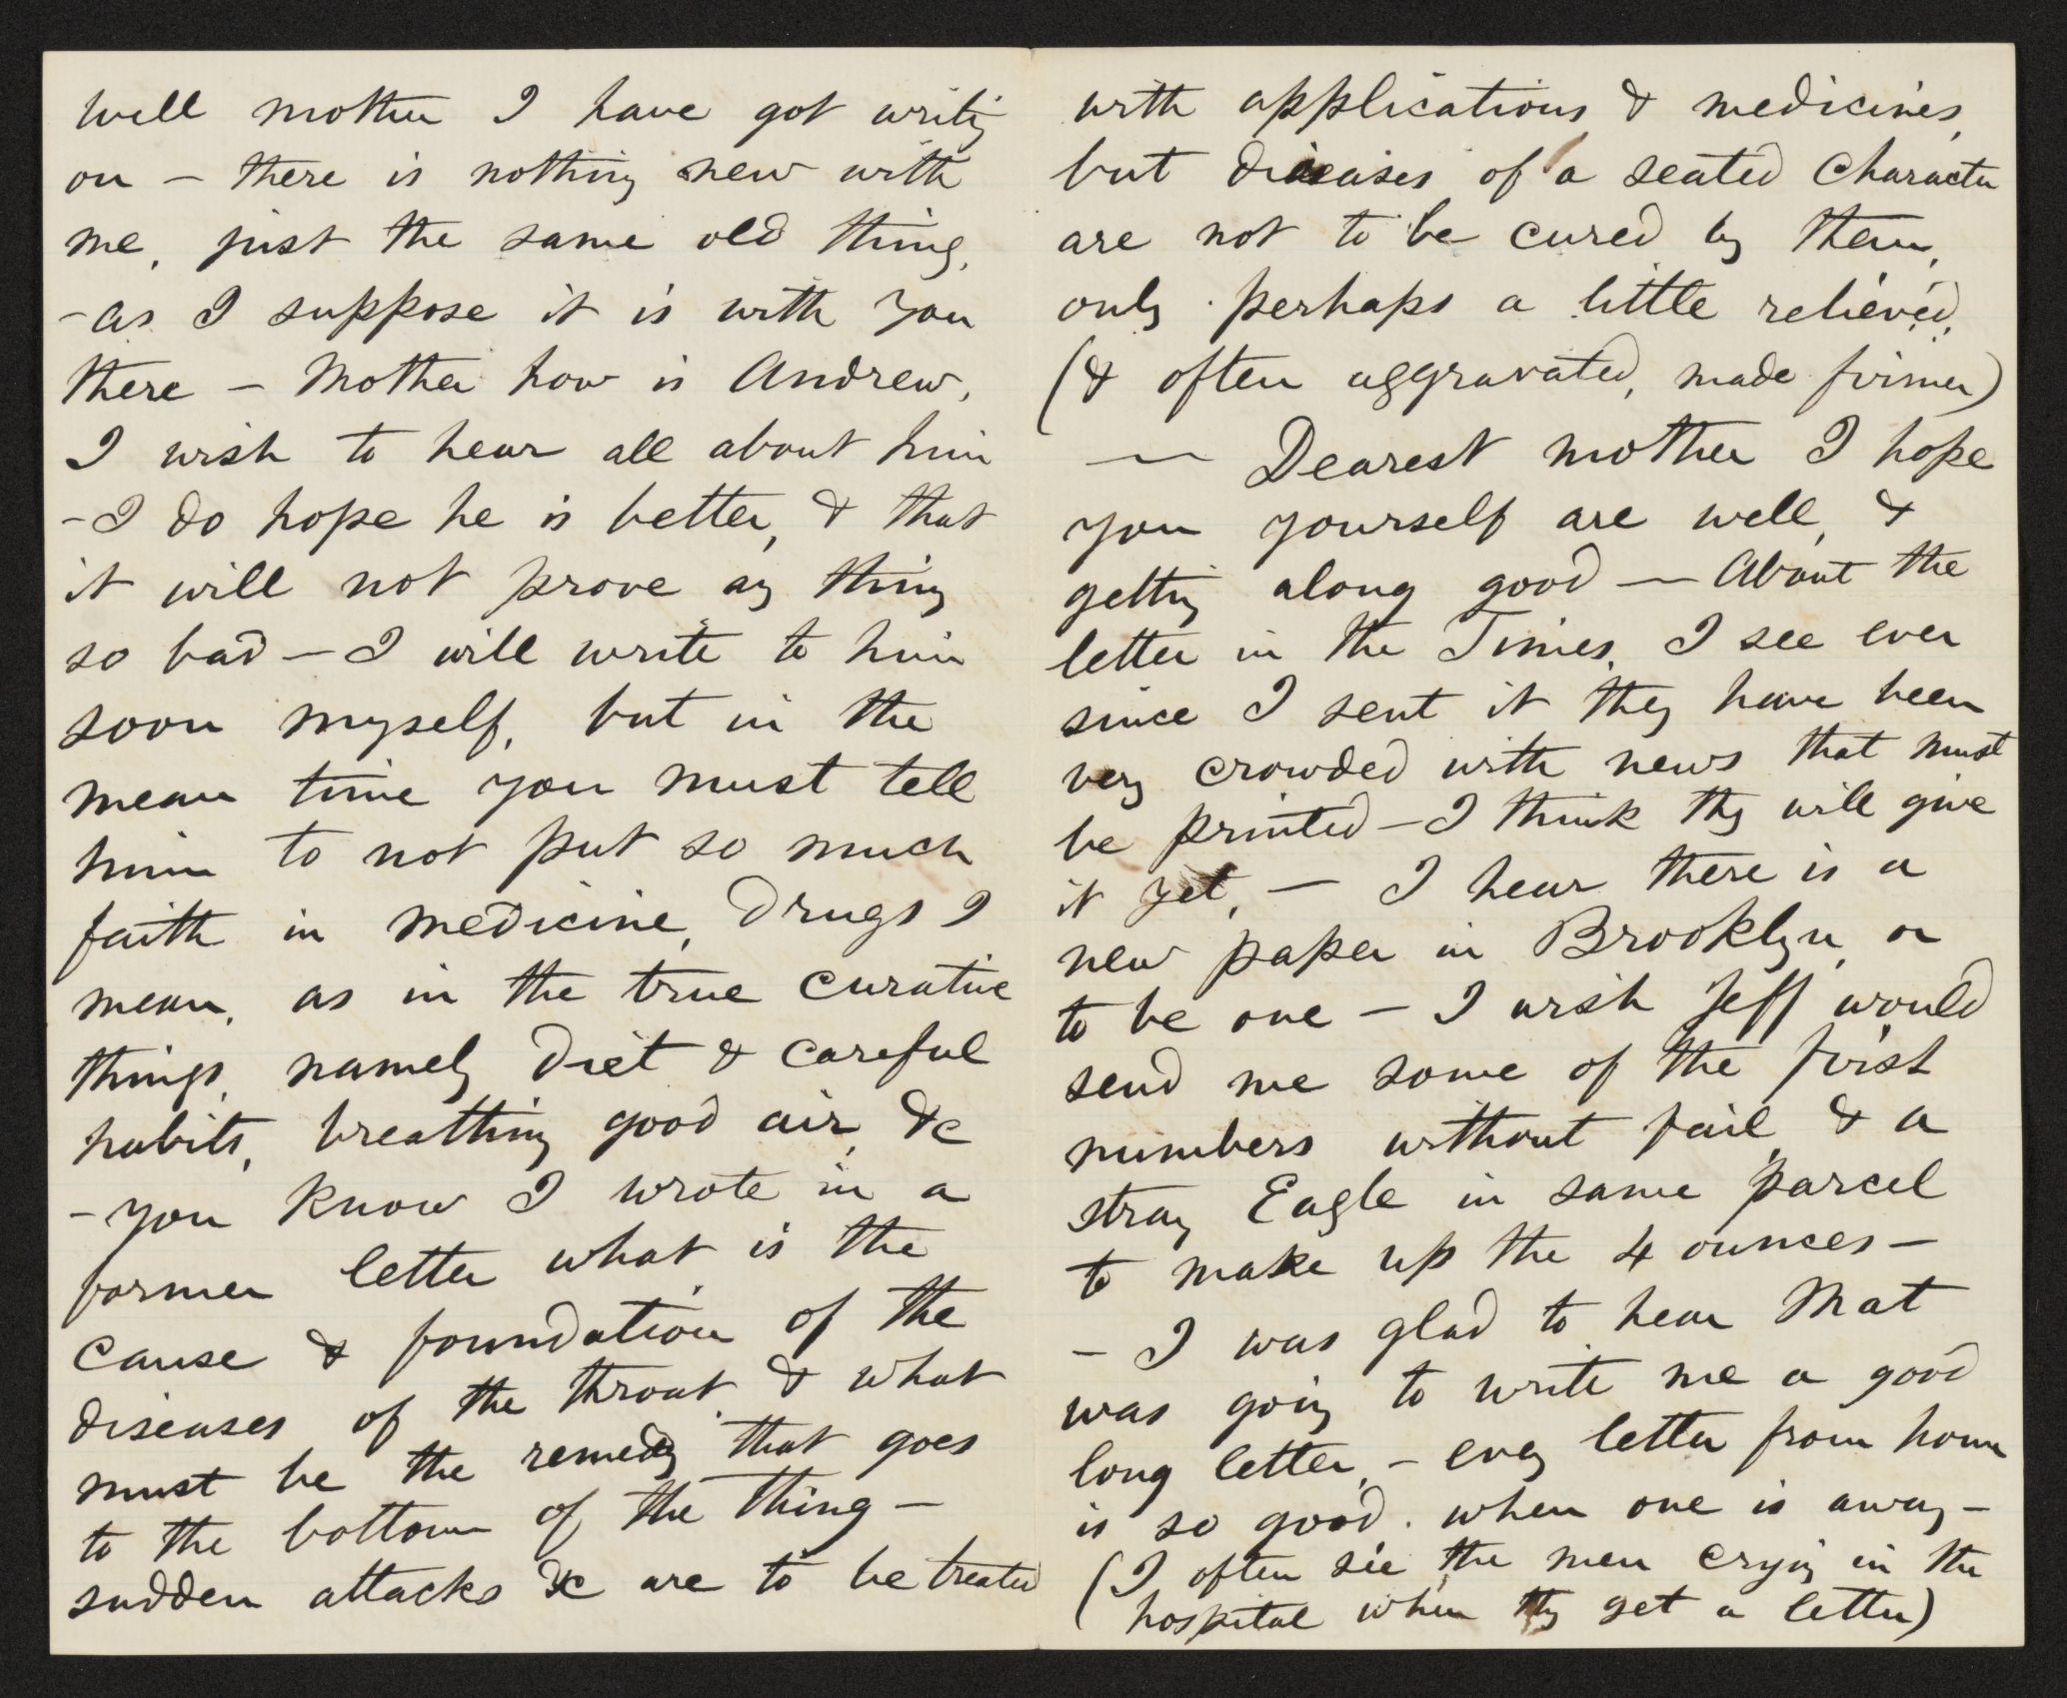 well mother I have got writing
on — there is nothing new with
me, just the same old thing,
— as I suppose it is with you
there — Mother how is Andrew,
I wish to hear all about him
— I do hope he is better, & that
it will not prove any thing
so bad — I will write to him
soon myself, but in the
mean time you must tell
him to not put so much
faith in medicine, drugs I
mean, as in the true curative
things, namely diet & careful
habits, breathing good air, &c
— you know I wrote in a
former letter what is the
cause & foundation of the
diseases of the throat & what
must be the remedy that goes
to the bottom of the thing —
sudden attacks &c are to be treated
with applications & medicines,
but diseases of a seated character
are not to be cured by them,
only perhaps a little relieved,
(& often aggravated, made firmer)
— Dearest mother I hope
you yourself are well, &
getting along good — About the
letter in the Times, I see ever
since I sent it they have been
very crowded with news that must
be printed — I think they will give
it yet, — I hear there is a
new paper in Brooklyn, or
to be one — I wish Jeff would
send me some of the first
numbers without fail, & a
stray Eagle in same parcel
to make up the 4 ounces —
— I was glad to hear Mat
was going to write me a good
long letter, — every letter from home
is so good, when one is away —
(I often see the men crying in the
hospital when they get a letter)